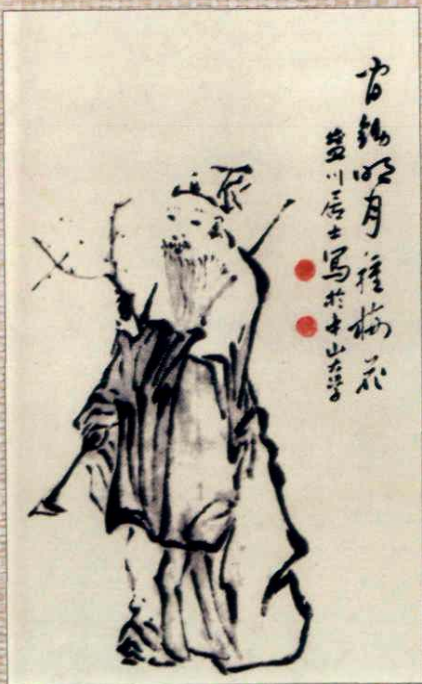 閒鋤明月種梅花
川居士寫於中山大学